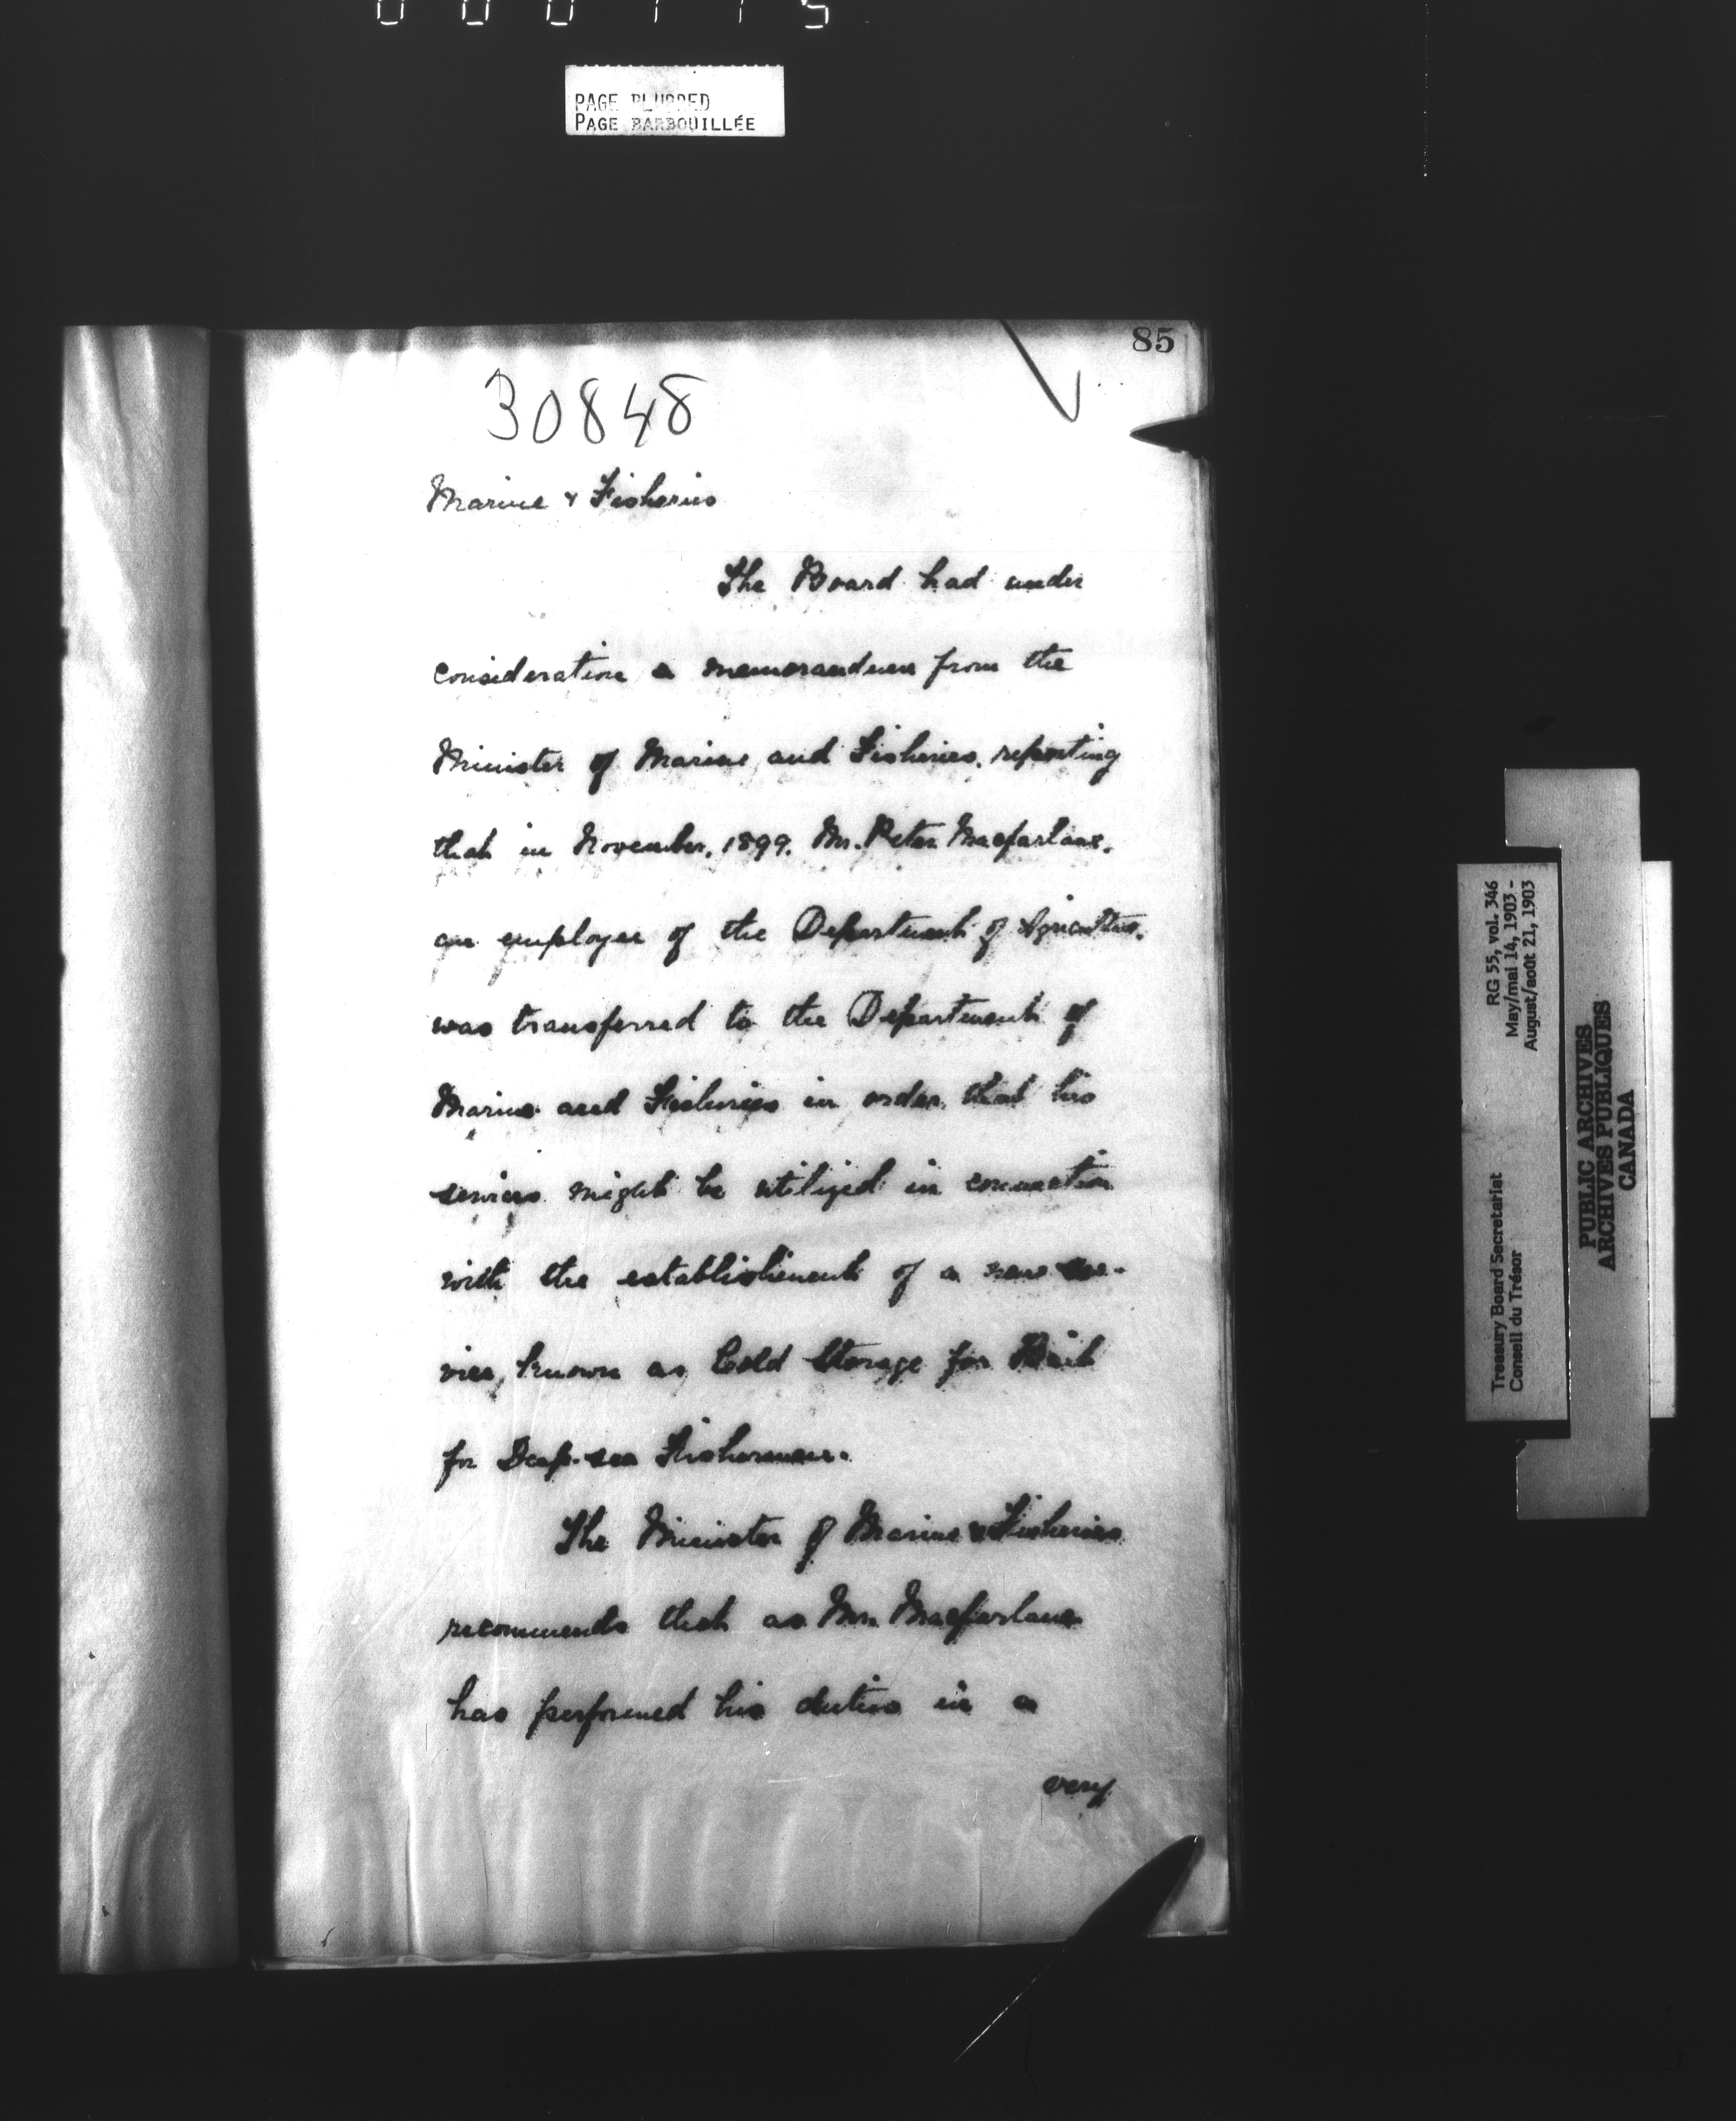 PAGE BLURRED
PAGE BARBOUILLÉE
85
30848
Marine & Fisheries
The Board had under
consideration a memorandum from the
Minister of Marine and Fisheries, reporting
that in November, 1899, Mr. Peter Macfarlane,
an employee of the Department of Agriculture,
was transferred to the Department of
Marine and Fisheries in order that his
services might be utilized in connection
with the establishment of a new ser-
vice, known as Cold Storage for Bait
for Deep-sea Fishermen.
The Minister of Marine & Fisheries
recommends that as Mr. Macfarlane
has performed his duties in a
very
RG 55, vol. 346
May/mai 14, 1903 -
August/août 21, 1903
Treasury Board Secretariat
Conseil du Trésor
PUBLIC ARCHIVES
ARCHIVES PUBLIQUES
CANADA